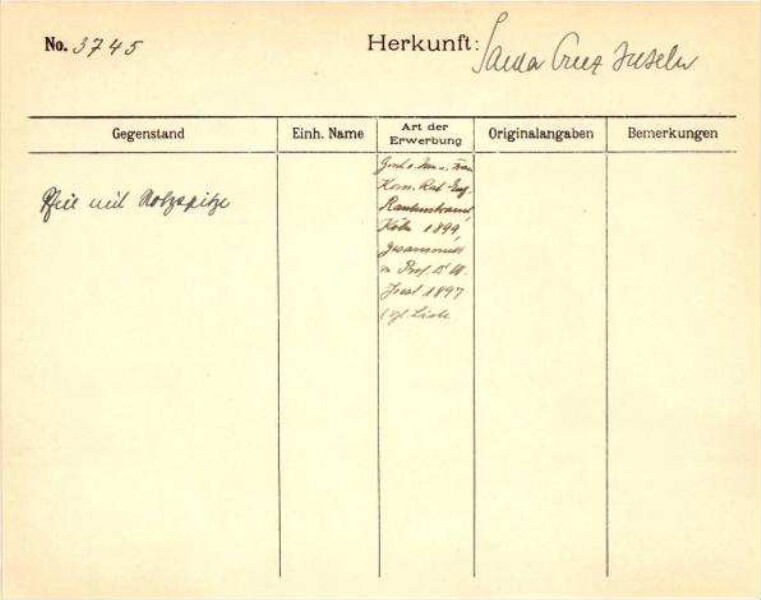 No. 3745
Herkunft: Santa Cruz Inseln
Gegenstand
Einh. Name
Art der
Erwerbung
Originalangaben
Bemerkungen
Pfeil mit Holzspitze
Gesch. v. Herr u. Frau
Kom. Rat Eug.
Rautenstrauch,
Köln 1899,
gesammelt
v. Prof. Dr W.
Joest 1897
(vgl. Liste